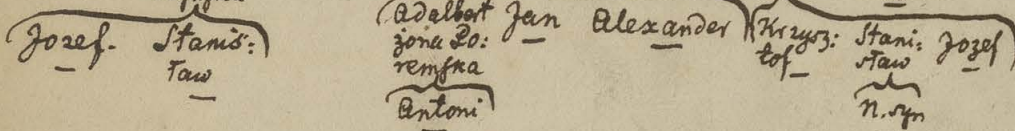 Jozef. Stanis:
ław
Adalbert
żona Po:
remska
Antoni
Jan
Alexander
Krzysz:
tof
Stani:
sław
n. syn
Jozef